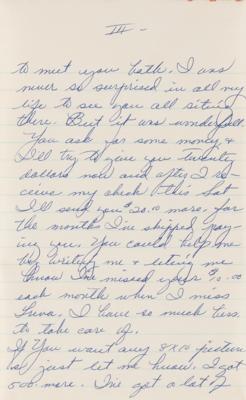 III -
to meet you both. I was
never so surprised in all my
life to see you all sitting
there. But it was wonderfull.
You ask for some money &
I'll try to give you twenty
dollars now and after I re-
ceive my check this Sat
I'll send you $20.00 more. for
the month I've skipped pay-
ing you. You could help me
by writing me & letting me
know I've missed your $10.00
each month when I miss
I have so much here
to take care of.
If you want any 8X10 pictures
just let me know. I got
500 more. I've got a lot of